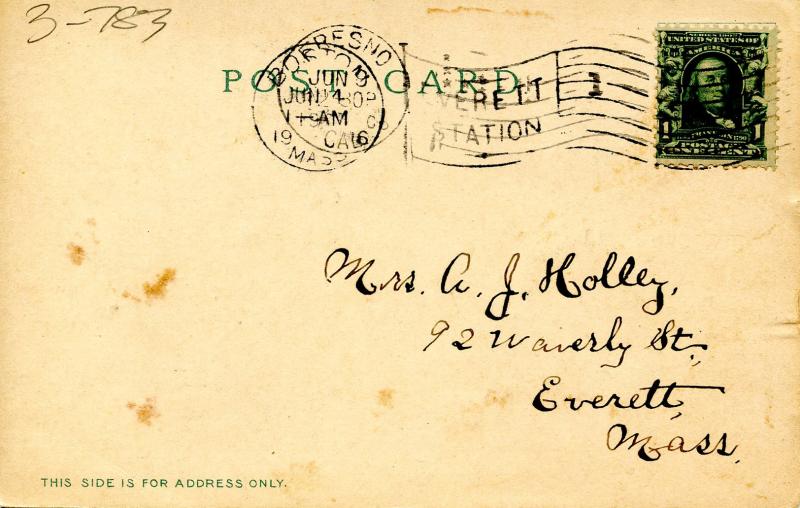 3-783
POST CARD
BOSTON
FRESNO
JUN 9
JUN 14
12-30P
AM
CAL
19 6
MASS
EVERETT
STATION
1
SERIES 1902
UNITED STATES OF
AMERICA
1 1
POSTAGE
ONE CENT
Mrs. A. J. Holley,
92 Waverly St,
Everett,
Mass.
THIS SIDE IS FOR ADDRESS ONLY.